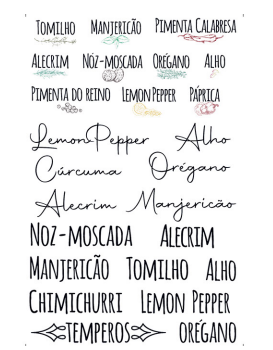 TOMILHO MANJERICÃO PIMENTA CALABRESA
ALECRIM NÓZ-MOSCADA ORÉGANO ALHO
PIMENTA DO REINO LEMON PEPPER PÁPRICA
Lemon Pepper Alho
Cúrcuma Orégano
Alecrim Manjericão
NOZ-MOSCADA ALECRIM
MANJERICÃO TOMILHO ALHO
CHIMICHURRI LEMON PEPPER
TEMPEROS ORÉGANO